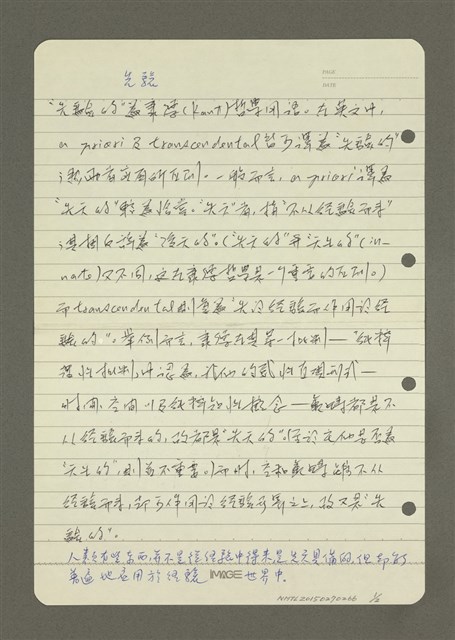 先驗
PAGE
DATE
"先驗的"為康德(Kant)哲學用語。在英文中,
a priori 及 transcendental 皆可譯為"先驗的"
這兩者實有所區別。一般而言, a priori 譯為
"先天的"較為恰當。"先天"者, 指"不從經驗而來"
其相反詞為"後天的"。("先天的"和"天生的"(in-
nate)又不同, 這在康德哲學是一個重要的區別。)
而 transcendental 則意為"先於經驗而作用於經
驗的"。舉例而言, 康德在其第一批判—"純粹
理性批判"中認為, 我們的感性直觀形式—
時間、空間以及純粹知性概念—範疇都是不
從經驗而來的, 故都是"先天的"(至於它們是否為
"天生的", 則並不重要)而時、空和範疇雖不從
經驗而來, 卻可作用於經驗對象之上, 故又是"先
驗的"。
人類有些東西, 並不是從經驗中得來, 是先天具備的, 但卻能
普遍地應用於經驗世界中。
IMAGE
NMTL20150290266 1/2